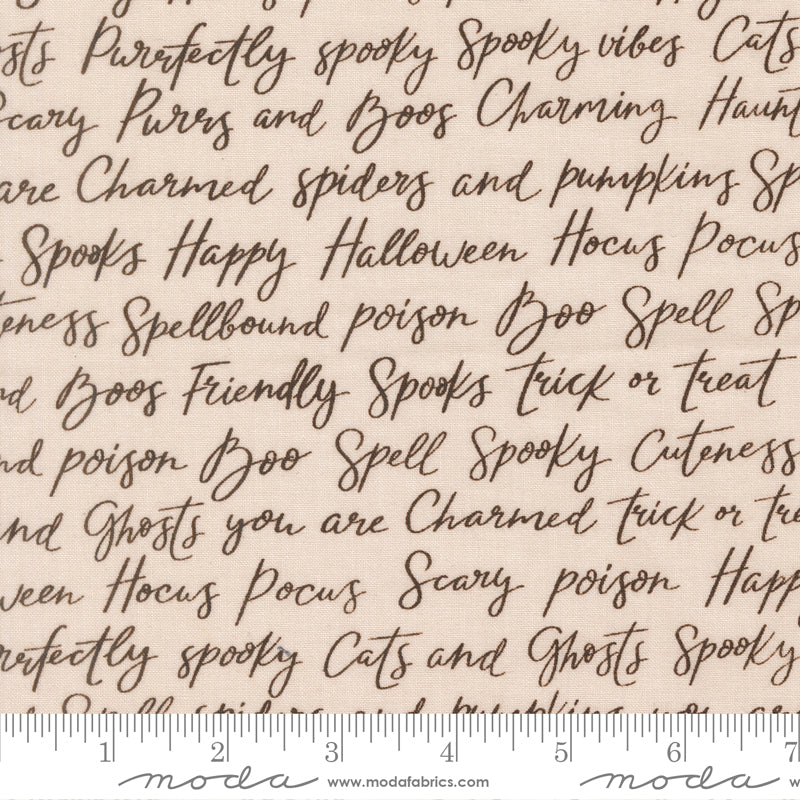 osts Purrfectly spooky Spooky vibes Cats
Scary Purrs and Boos Charming Haunt
are Charmed spiders and pumpkins Sp
Spooks Happy Halloween Hocus Pocus
teness Spellbound poison Boo Spell Sp
nd Boos Friendly Spooks trick or treat
nd poison Boo Spell Spooky Cuteness
and Ghosts you are Charmed trick or tre
ween Hocus Pocus Scary poison Happ
rrfectly spooky Cats and Ghosts Spooky
Spell spiders and pumpkins you are
1 2 3 4 5 6 7
moda www.modafabrics.com moda w